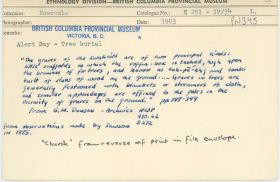 ETHNOLOGY DIVISION—BRITISH COLUMBIA PROVINCIAL MUSEUM
Collection: Newcombe Catalogue No.
Photographer: Date: 1903 PN 345
BRITISH COLUMBIA PROVINCIAL MUSEUM
VICTORIA, B. C.
Alert Bay - Tree burial
"The graves of the Kwakiutl are of two principal kinds:
little scaffolds to which the coffin-box is lashed, high up
the branches of fir trees, and known as and tombs
built of slabs of wood on the ground... Graves in trees are
generally festooned with blankets or streamers of cloth,
and similar appendages are affixed to poles in the
vicinity of graves on the ground."
From G.M. Dawson - Archives NWP
970.62
D272
from observations made by Dawson
in 1885.
"Church" from reverse of print in file envelope.